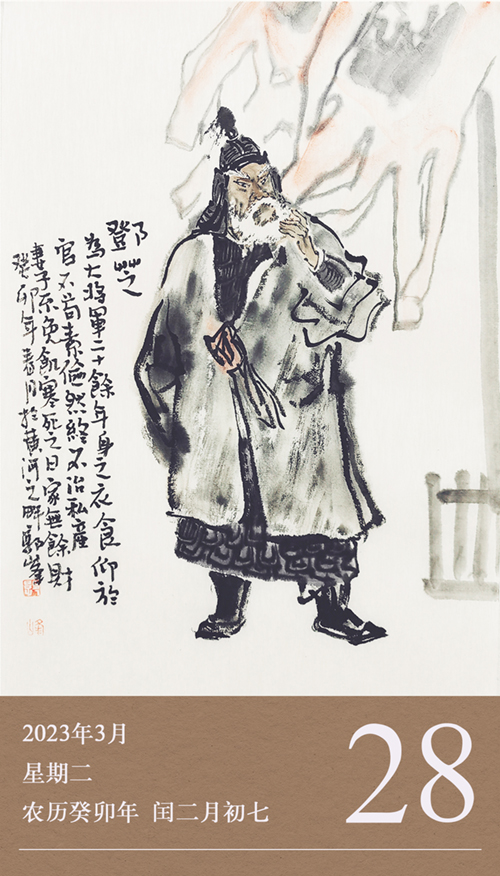 鄧芝
為大將軍二十餘年身之衣食仰於
官不苟素儉然終不治私產
妻子不免飢寒死之日家無餘財
癸卯年春月於黃河之畔郭峰
2023年3月
星期二
农历癸卯年 闰二月初七
28